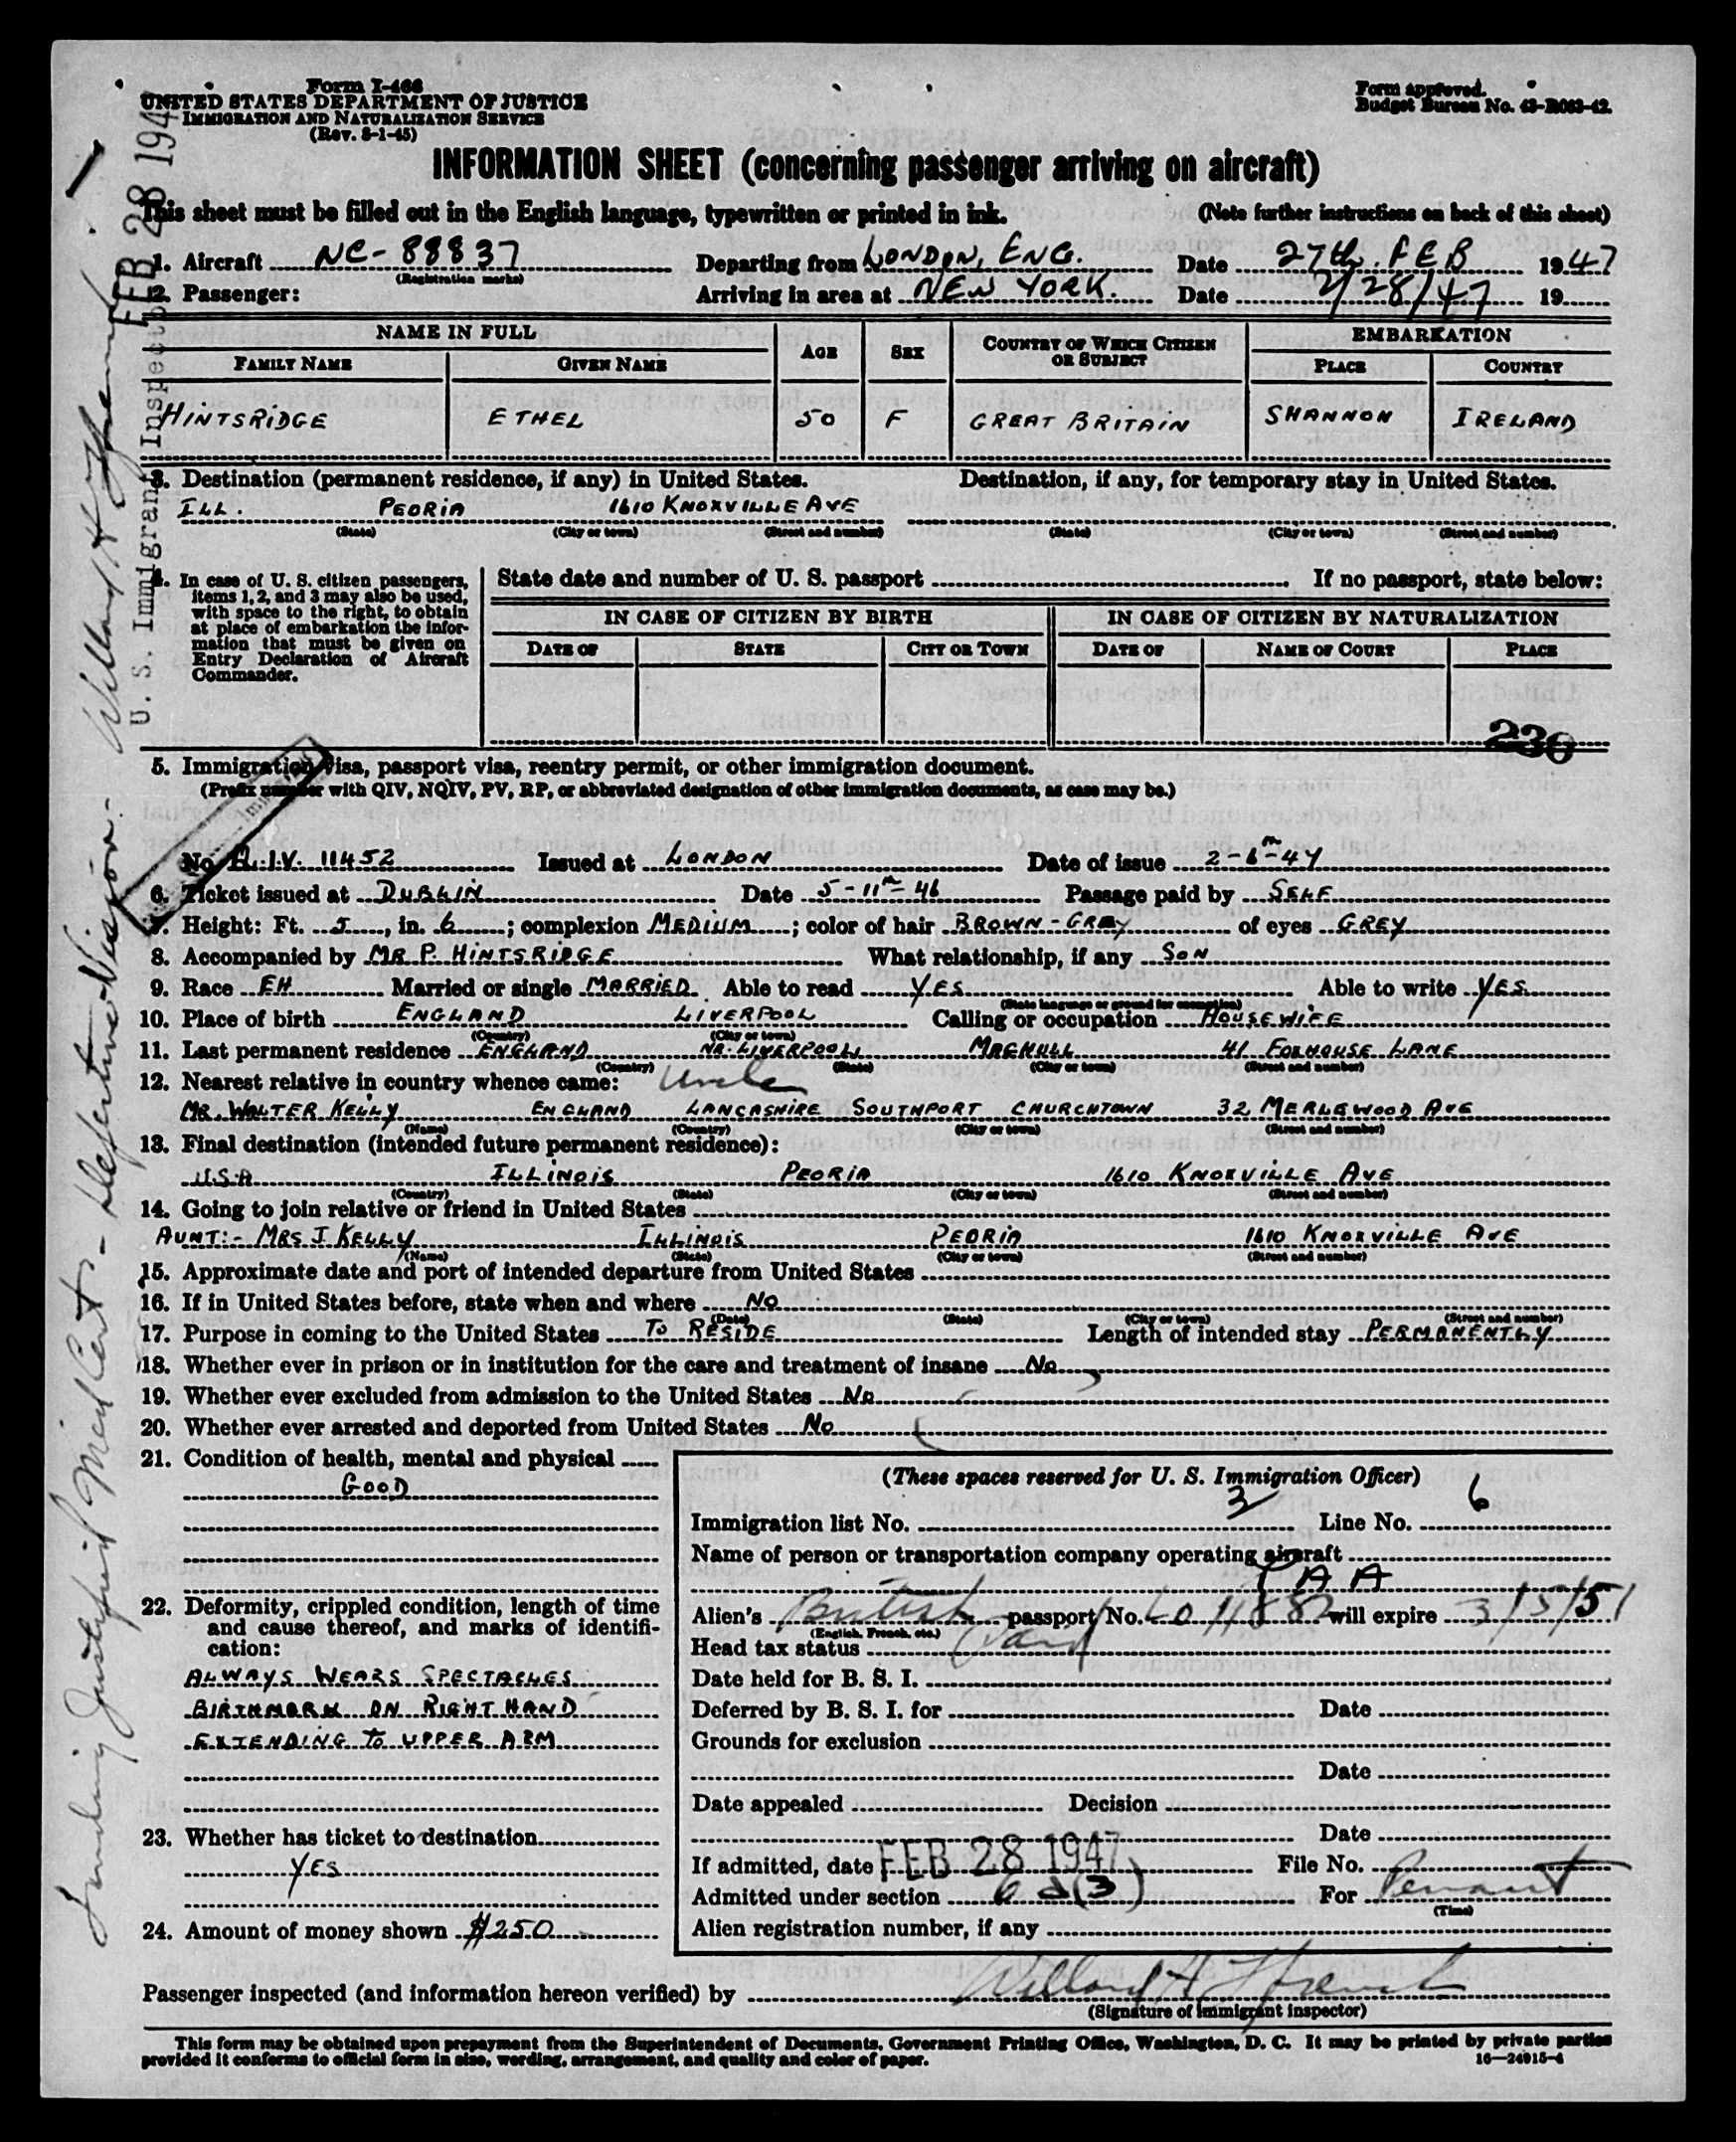 Form I-466
UNITED STATES DEPARTMENT OF JUSTICE
IMMIGRATION AND NATURALIZATION SERVICE
(Rev. 8-1-45)
Form approved.
Budget Bureau No. 43-R063-42.
INFORMATION SHEET (concerning passenger arriving on aircraft)
This sheet must be filled out in the English language, typewritten or printed in ink. (Note further instructions on back of this sheet)
1. Aircraft NC-88837 Departing from LONDON, ENG. Date 27th. FEB 1947
(Registration marks)
2. Passenger: Arriving in area at NEW YORK. Date 2/28/47 19
NAME IN FULL AGE SEX COUNTRY OF WHICH CITIZEN OR SUBJECT EMBARKATION
FAMILY NAME GIVEN NAME PLACE COUNTRY
HINTSRIDGE ETHEL 50 F GREAT BRITAIN SHANNON IRELAND
3. Destination (permanent residence, if any) in United States. Destination, if any, for temporary stay in United States.
ILL. PEORIA 1610 KNOXVILLE AVE
(State) (City or town) (Street and number) (State) (City or town) (Street and number)
4. In case of U. S. citizen passengers, items 1, 2, and 3 may also be used, with space to the right, to obtain at place of embarkation the information that must be given on Entry Declaration of Aircraft Commander.
State date and number of U. S. passport . If no passport, state below:
IN CASE OF CITIZEN BY BIRTH IN CASE OF CITIZEN BY NATURALIZATION
DATE OF STATE CITY OR TOWN DATE OF NAME OF COURT PLACE
236
5. Immigration visa, passport visa, reentry permit, or other immigration document.
(Prefix number with QIV, NQIV, PV, RP, or abbreviated designation of other immigration documents, as case may be.)
No. Q.I.V. 11452 Issued at LONDON Date of issue 2-6m-47
6. Ticket issued at DUBLIN Date 5-11m-46 Passage paid by SELF
7. Height: Ft. 5, in. 6; complexion MEDIUM; color of hair BROWN-GREY of eyes GREY
8. Accompanied by MR P. HINTSRIDGE What relationship, if any SON
9. Race EH Married or single MARRIED Able to read YES Able to write YES
(State language or ground for exemption)
10. Place of birth ENGLAND LIVERPOOL Calling or occupation HOUSEWIFE
(Country) (City or town)
11. Last permanent residence ENGLAND NR. LIVERPOOL MAGHULL 41 FOXHOUSE LANE
(Country) (State) (City or town) (Street and number)
12. Nearest relative in country whence came: Uncle
MR. WALTER KELLY ENGLAND LANCASHIRE SOUTHPORT CHURCHTOWN 32 MERLEWOOD AVE
(Name) (Country) (City or town) (Street and number)
13. Final destination (intended future permanent residence):
U.S.A ILLINOIS PEORIA 1610 KNOXVILLE AVE
(Country) (State) (City or town) (Street and number)
14. Going to join relative or friend in United States
AUNT:- MRS J KELLY ILLINOIS PEORIA 1610 KNOXVILLE AVE
(Name) (State) (City or town) (Street and number)
15. Approximate date and port of intended departure from United States
16. If in United States before, state when and where NO
(Date) (State) (City or town) (Street and number)
17. Purpose in coming to the United States TO RESIDE Length of intended stay PERMANENTLY
18. Whether ever in prison or in institution for the care and treatment of insane No
19. Whether ever excluded from admission to the United States No
20. Whether ever arrested and deported from United States No
21. Condition of health, mental and physical
GOOD
22. Deformity, crippled condition, length of time and cause thereof, and marks of identification:
ALWAYS WEARS SPECTACLES
BIRTHMARK ON RIGHT HAND
EXTENDING TO UPPER ARM
23. Whether has ticket to destination
YES
24. Amount of money shown $250
(These spaces reserved for U. S. Immigration Officer)
Immigration list No. 3 Line No. 6
Name of person or transportation company operating aircraft
P A A
Alien's British passport No. will expire 3/5/51
(English, French, etc.)
Head tax status Paid
Date held for B. S. I.
Deferred by B. S. I. for Date
Grounds for exclusion
Date
Date appealed Decision
Date
If admitted, date FEB 28 1947 File No.
Admitted under section 6 d(3) For
(Time)
Alien registration number, if any
Passenger inspected (and information hereon verified) by Willard H
(Signature of immigrant inspector)
This form may be obtained upon prepayment from the Superintendent of Documents, Government Printing Office, Washington, D. C. It may be printed by private parties
provided it conforms to official form in size, wording, arrangement, and quality and color of paper. 16—24915-4
Med Cert - Defective Vision.
Willard H
U. S. Immigrant Inspector
FEB 28 194